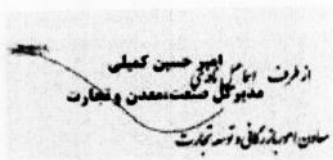 امیر حسین کمیلی
از طرف
مدیر کل صنعت،معدن و تجارت
معاون امور بازرگانی و توسعه تجارت